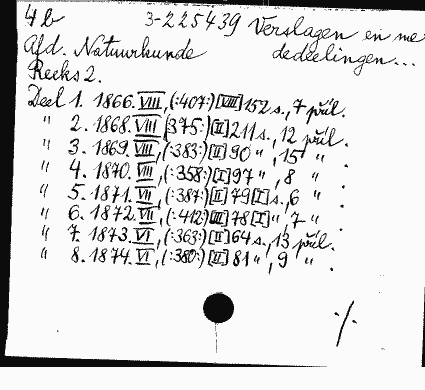 4b 3-225439 Verslagen en me
Afd. Natuurkunde dedeelingen...
Reeks 2.
Deel 1. 1866. VIII, (:407:) [VIII] 152 s., 7 příl.
" 2. 1868. VIII, (375:) [II] 211 s., 12 příl.
" 3. 1869. VIII, (:383:) [II] 90 ", 15 " .
" 4. 1870. VIII, (:358:) [I] 97 ", 8 " .
" 5. 1871. VII, (:387:) [II] 79 [I] s., 6 " .
" 6. 1872. VII, (:412:) [III] 78 [I] ", 7 " .
" 7. 1873. VI, (:363:) [II] 64 s., 13 příl.
" 8. 1874. VI, (:380:) [II] 81 ", 9 " .
./.